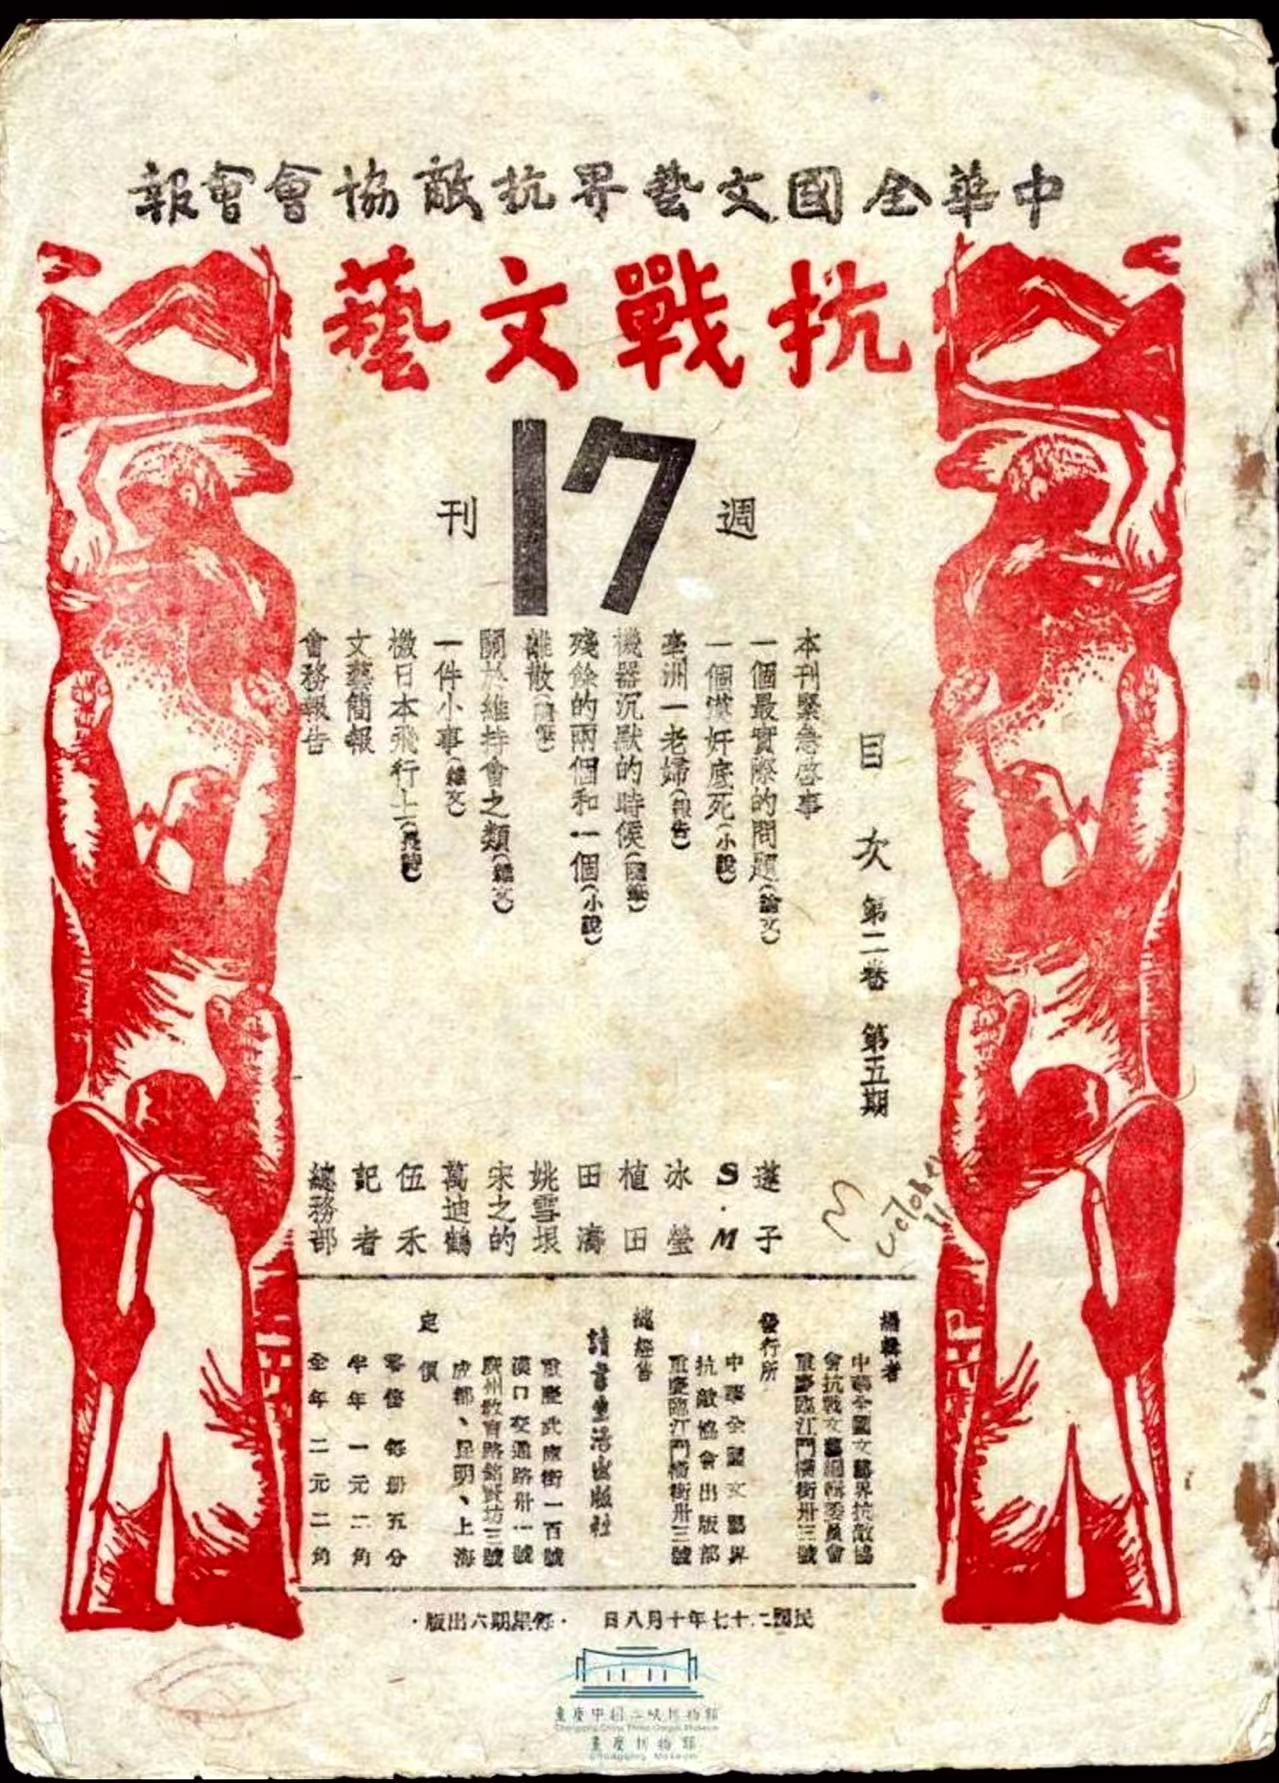 中華全國文藝界抗敵協會會報
抗戰文藝
週 17 刊
目次 第二卷 第五期
本刊緊急啓事
一個最實際的問題(論文) 蓬子
一個漢奸底死(小說) S.M
亳洲一老婦(報告) 冰瑩
機器沉默的時候(隨筆) 植田
殘餘的兩個和一個(小說) 田濤
離散 姚雪垠
關於維持會之類(雜文) 宋之的
一件小事(雜文) 萬迪鶴
檄日本飛行士(長詩) 伍禾
文藝簡報 記者
會務報告 總務部
October
編輯者
中華全國文藝界抗敵協
會抗戰文藝編輯委員會
重慶臨江門橫街卅三號
發行所
中華全國文藝界
抗敵協會出版部
重慶臨江門橫街卅三號
總經售
讀書生活出版社
重慶武庫街一百號
漢口交通路卅一號
廣州教育路銘賢坊三號
成都、昆明、上海
定價
零售 每册五分
半年 一元二角
全年 二元二角
民國二十七年十月八日 ·每星期六出版·
重慶中國三峽博物館
Chongqing China Three Gorges Museum
重慶博物館
Chongqing Museum